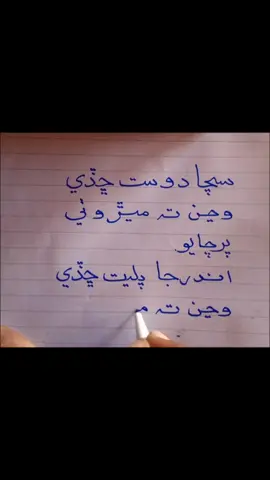 سچا دوست ڇڏي
وڃن تہ ميڙ وٺي
پرچايو
اندر جا پليت ڇڏي
وڃن تہ مـ